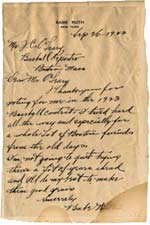 BABE RUTH
NEW YORK
Sept 26 – 1933
Mr. J. C. O'Leary
Baseball Reporter
Boston Mass
Dear Mr O'Leary
I thank you for
voting for me in the 1933
Baseball contest. I tried hard
all the way and especially for
a whole lot of Boston friends
from the old days.
I'm not going to quit trying
have a lot of years ahead
and I'll do my best to make
them good years
Sincerely
Babe Ruth